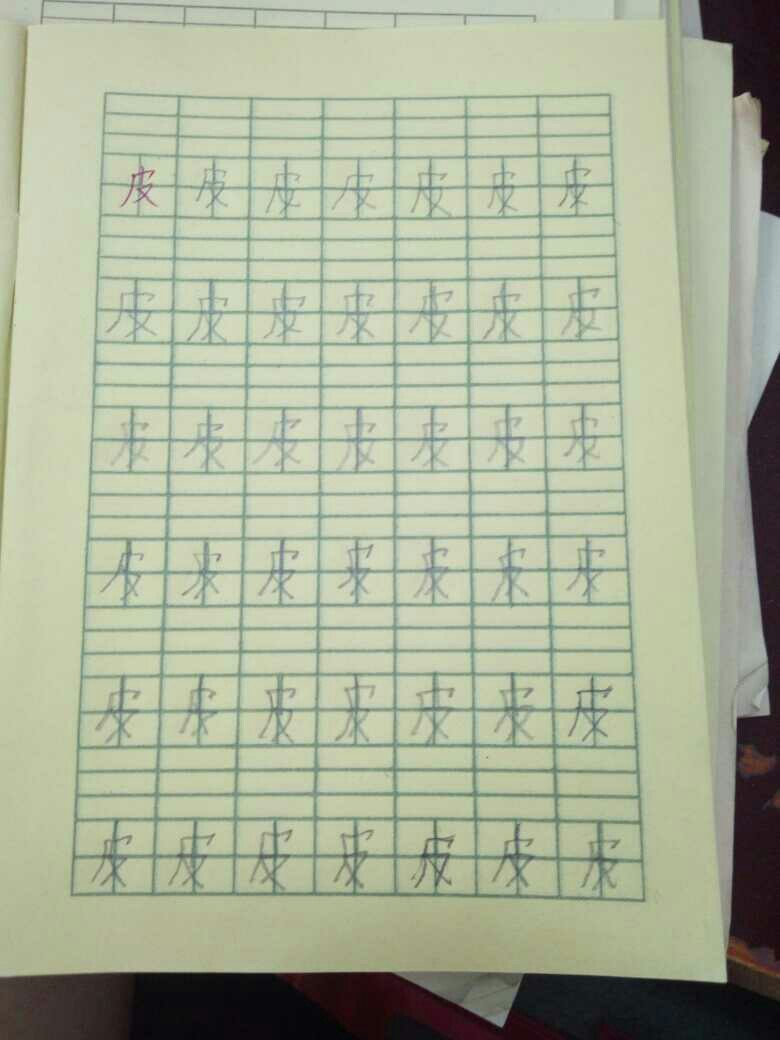 皮 皮 皮 皮 皮 皮 皮
皮 皮 皮 皮 皮 皮 皮
皮 皮 皮 皮 皮 皮 皮
皮 皮 皮 皮 皮 皮 皮
皮 皮 皮 皮 皮 皮 皮
皮 皮 皮 皮 皮 皮 皮